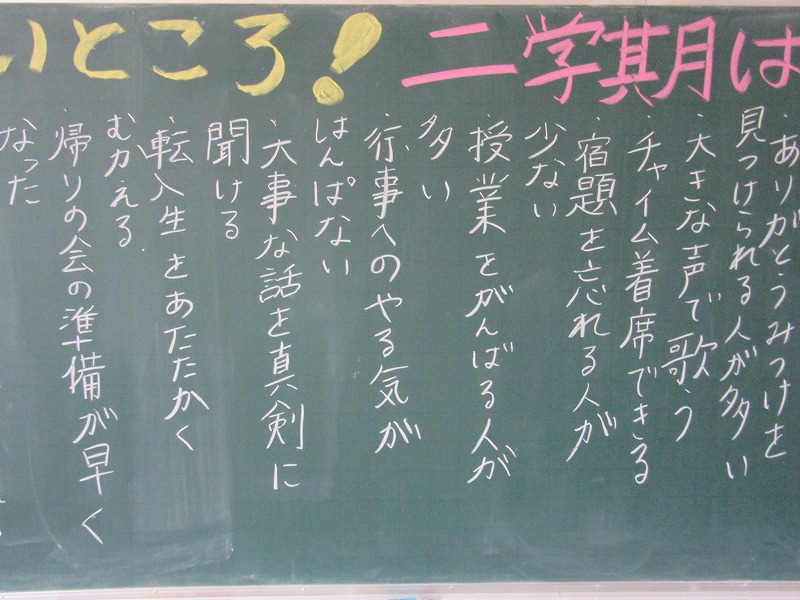 いところ!
二学期は
・ありがとうみつけを
見つけられる人が多い
・大きな声で歌う
・チャイム着席できる
・宿題を忘れる人が
少ない
・授業をがんばる人が
多い
・行事へのやる気が
はんぱない
・大事な話を真剣に
聞ける
・転入生をあたたかく
むかえる.
・帰りの会の準備が早く
なった